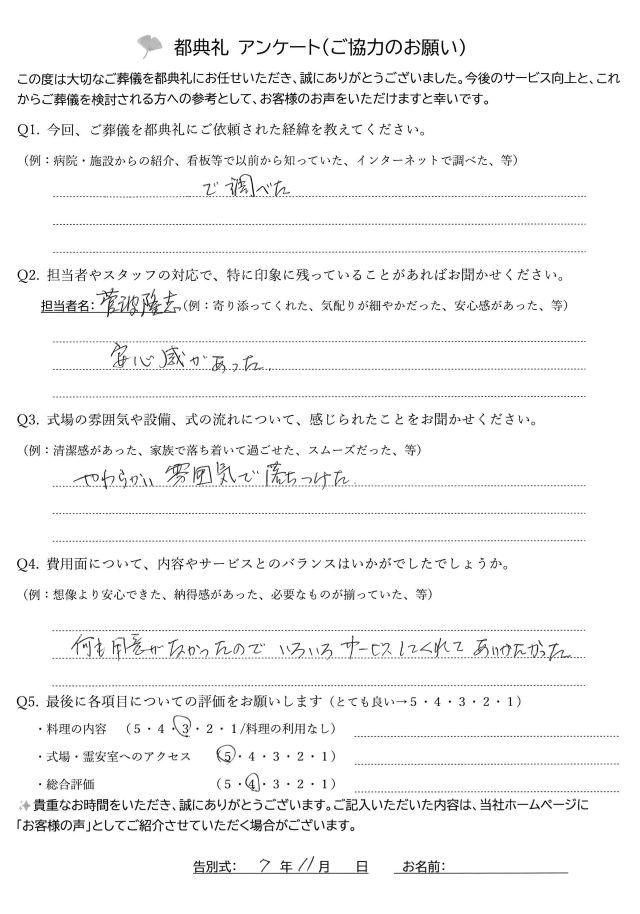 都典礼 アンケート（ご協力のお願い）
この度は大切なご葬儀を都典礼にお任せいただき、誠にありがとうございました。今後のサービス向上と、これ
からご葬儀を検討される方への参考として、お客様のお声をいただけますと幸いです。
Q1. 今回、ご葬儀を都典礼にご依頼された経緯を教えてください。
（例：病院・施設からの紹介、看板等で以前から知っていた、インターネットで調べた、等）
で調べた
Q2. 担当者やスタッフの対応で、特に印象に残っていることがあればお聞かせください。
担当者名：菅波隆志（例：寄り添ってくれた、気配りが細やかだった、安心感があった、等）
安心感があった。
Q3. 式場の雰囲気や設備、式の流れについて、感じられたことをお聞かせください。
（例：清潔感があった、家族で落ち着いて過ごせた、スムーズだった、等）
やわらかい雰囲気で落ちつけた
Q4. 費用面について、内容やサービスとのバランスはいかがでしたでしょうか。
（例：想像より安心できた、納得感があった、必要なものが揃っていた、等）
何も用意がなかったので いろいろ サービスしてくれて ありがたかった。
Q5. 最後に各項目についての評価をお願いします（とても良い→５・４・３・２・１）
・料理の内容 （５・４・３・２・１/料理の利用なし）
・式場・霊安室へのアクセス （５・４・３・２・１）
・総合評価 （５・４・３・２・１）
貴重なお時間をいただき、誠にありがとうございます。ご記入いただいた内容は、当社ホームページに
「お客様の声」としてご紹介させていただく場合がございます。
告別式： 7 年 11 月 日 お名前：